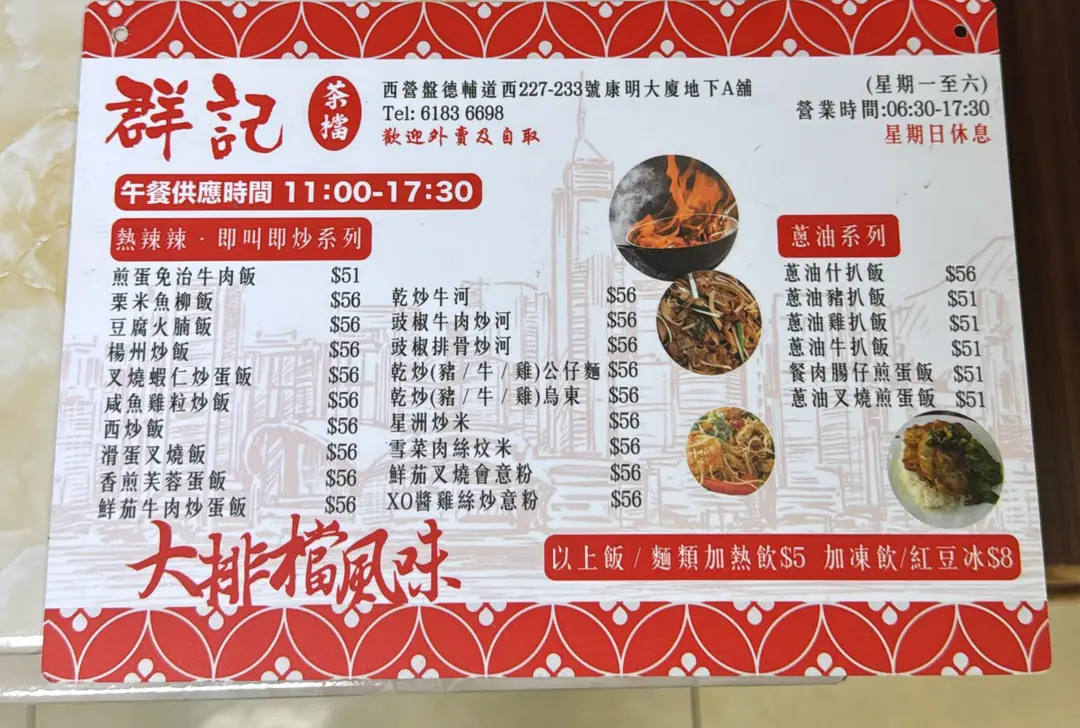 群記 茶檔
西營盤德輔道西227-233號康明大廈地下A舖
Tel: 6183 6698
歡迎外賣及自取
(星期一至六)
營業時間:06:30-17:30
星期日休息
午餐供應時間 11:00-17:30
熱辣辣·即叫即炒系列
煎蛋免治牛肉飯 $51
粟米魚柳飯 $56
豆腐火腩飯 $56
楊州炒飯 $56
叉燒蝦仁炒蛋飯 $56
咸魚雞粒炒飯 $56
西炒飯 $56
滑蛋叉燒飯 $56
香煎芙蓉蛋飯 $56
鮮茄牛肉炒蛋飯 $56
乾炒牛河 $56
豉椒牛肉炒河 $56
豉椒排骨炒河 $56
乾炒(豬/牛/雞)公仔麵 $56
乾炒(豬/牛/雞)烏東 $56
星洲炒米 $56
雪菜肉絲炆米 $56
鮮茄叉燒會意粉 $56
XO醬雞絲炒意粉 $56
蔥油系列
蔥油什扒飯 $56
蔥油豬扒飯 $51
蔥油雞扒飯 $51
蔥油牛扒飯 $51
餐肉腸仔煎蛋飯 $51
蔥油叉燒煎蛋飯 $51
大排檔風味
以上飯/麵類加熱飲$5 加凍飲/紅豆冰$8